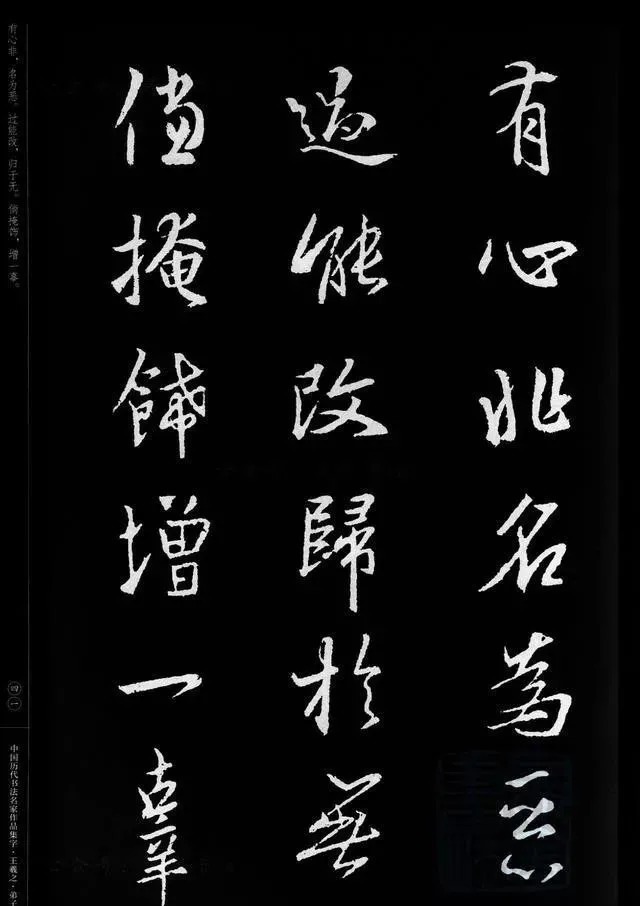 有心非名為惡
過能改歸於無
倘掩飾增一辜
有心非，名为恶。过能改，归于无。倘掩饰，增一辜。
四一
中国历代书法名家作品集字·王羲之·弟子